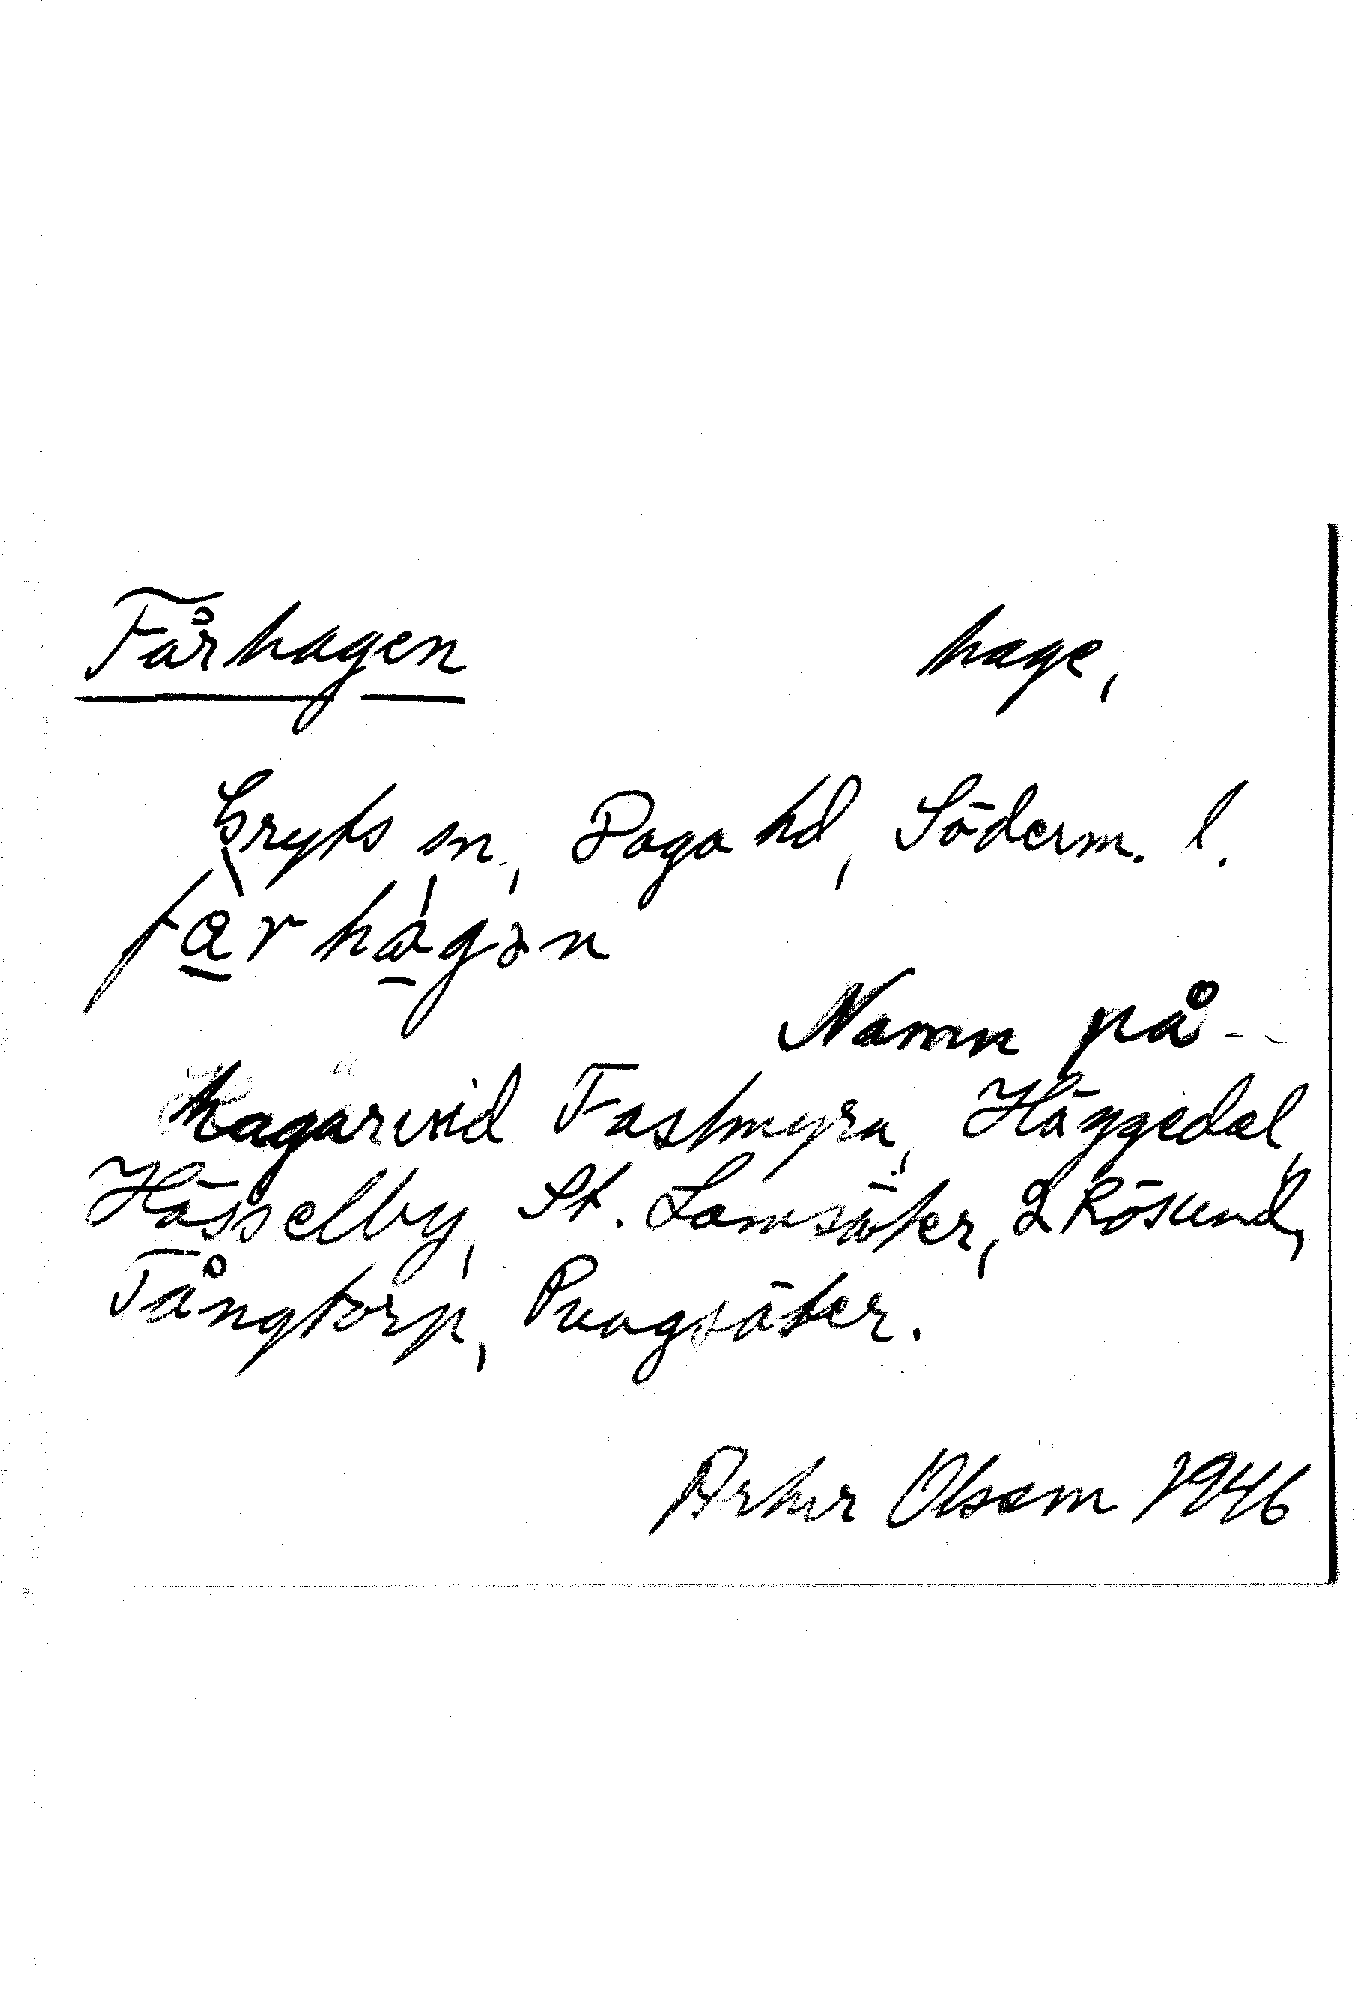 Fårhagen hage,
Gryts sn, Daga hd, Söderm. l.
fàrhágən
Namn på - -
hagar vid Fastmyra, Häggedal,
Hässelby, St. Lamsäter, Rösund,
Tångtorp, Pungsäter.
Artur Olsson 1946